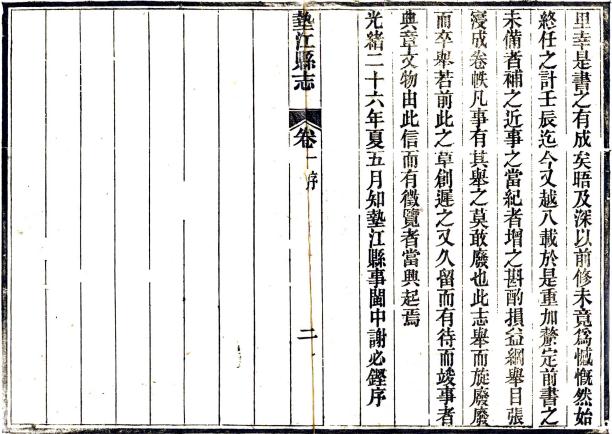 里幸是書之有成矣晤及深以前修未竟爲憾慨然始
終任之計壬辰迄今又越八載於是重加釐定前書之
未備者補之近事之當紀者增之斟酌損益綱舉目張
寖成卷帙凡事有其舉之莫敢廢也此志舉而旋廢廢
而卒舉若前此之草創遲之又久留而有待而竣事者
典章文物由此信而有徵覽者當興起焉
光緒二十六年夏五月知墊江縣事閩中謝必鏗序
墊江縣志
卷一 序
二